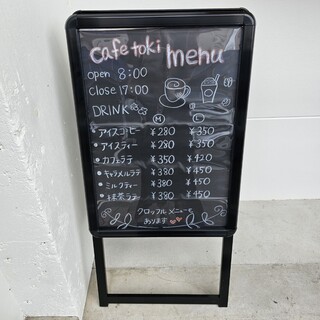 cafe toki menu
open 8:00
close 17:00
DRINK
M L
・アイスコーヒー ¥280 ¥350
・アイスティー ¥280 ¥350
・カフェラテ ¥350 ¥420
・キャラメルラテ ¥380 ¥450
・ミルクティー ¥380 ¥450
・抹茶ラテ ¥380 ¥450
クロッフルメニュー
あります